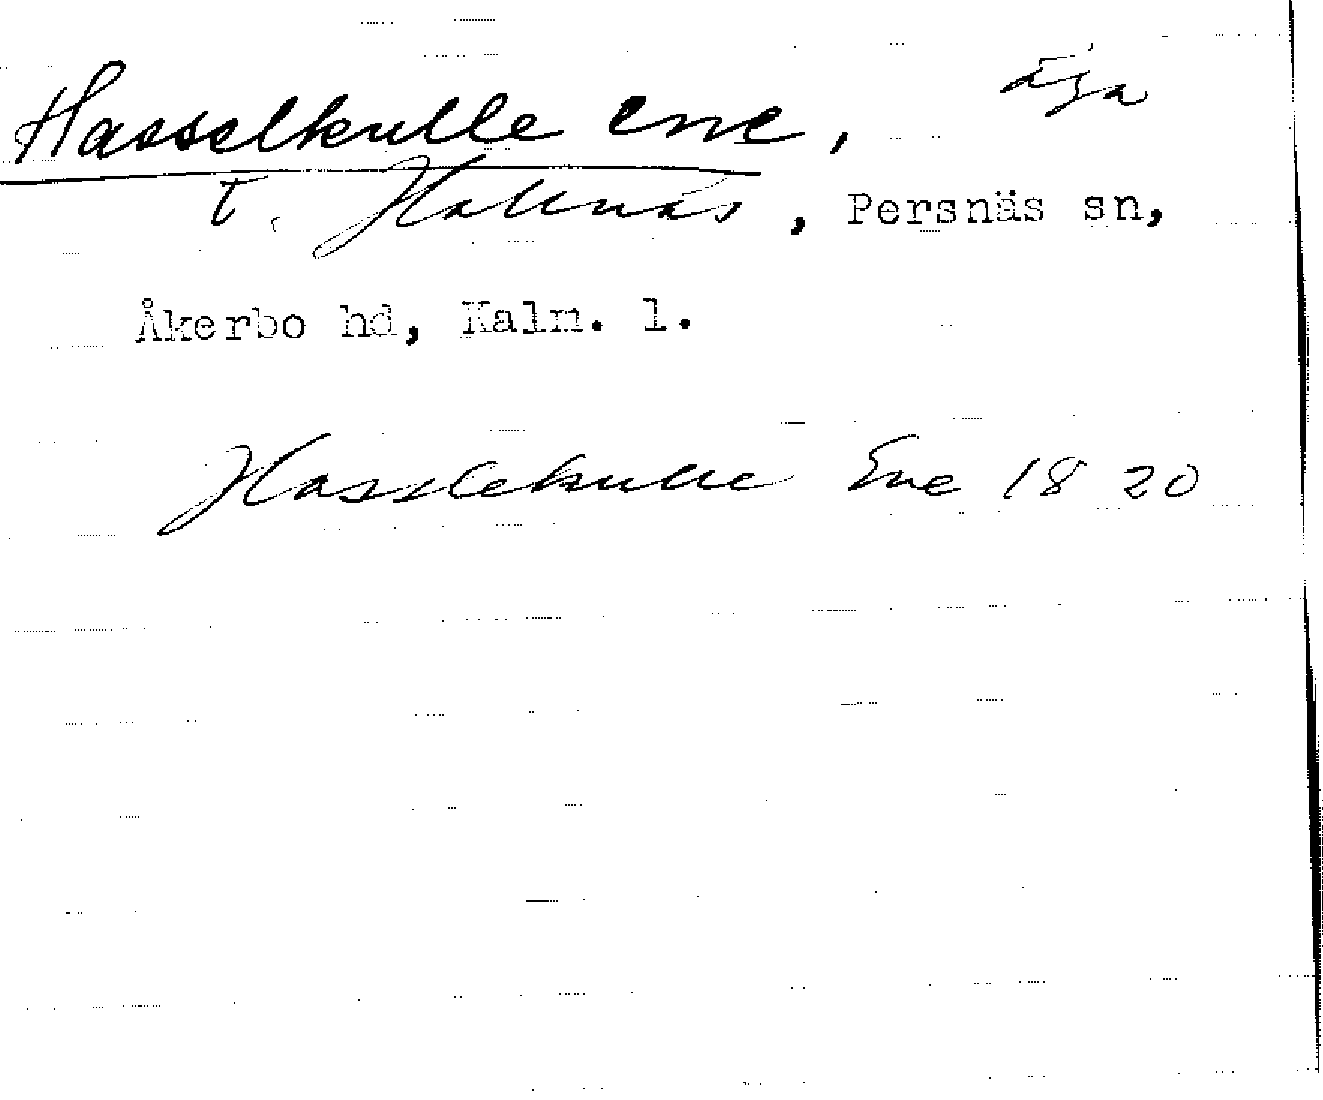 Hasselkulle ene, äga
t. Hallnäs, Persnäs sn,
Åkerbo hd, Kalm. l.
Hasslekulle Ene 1820